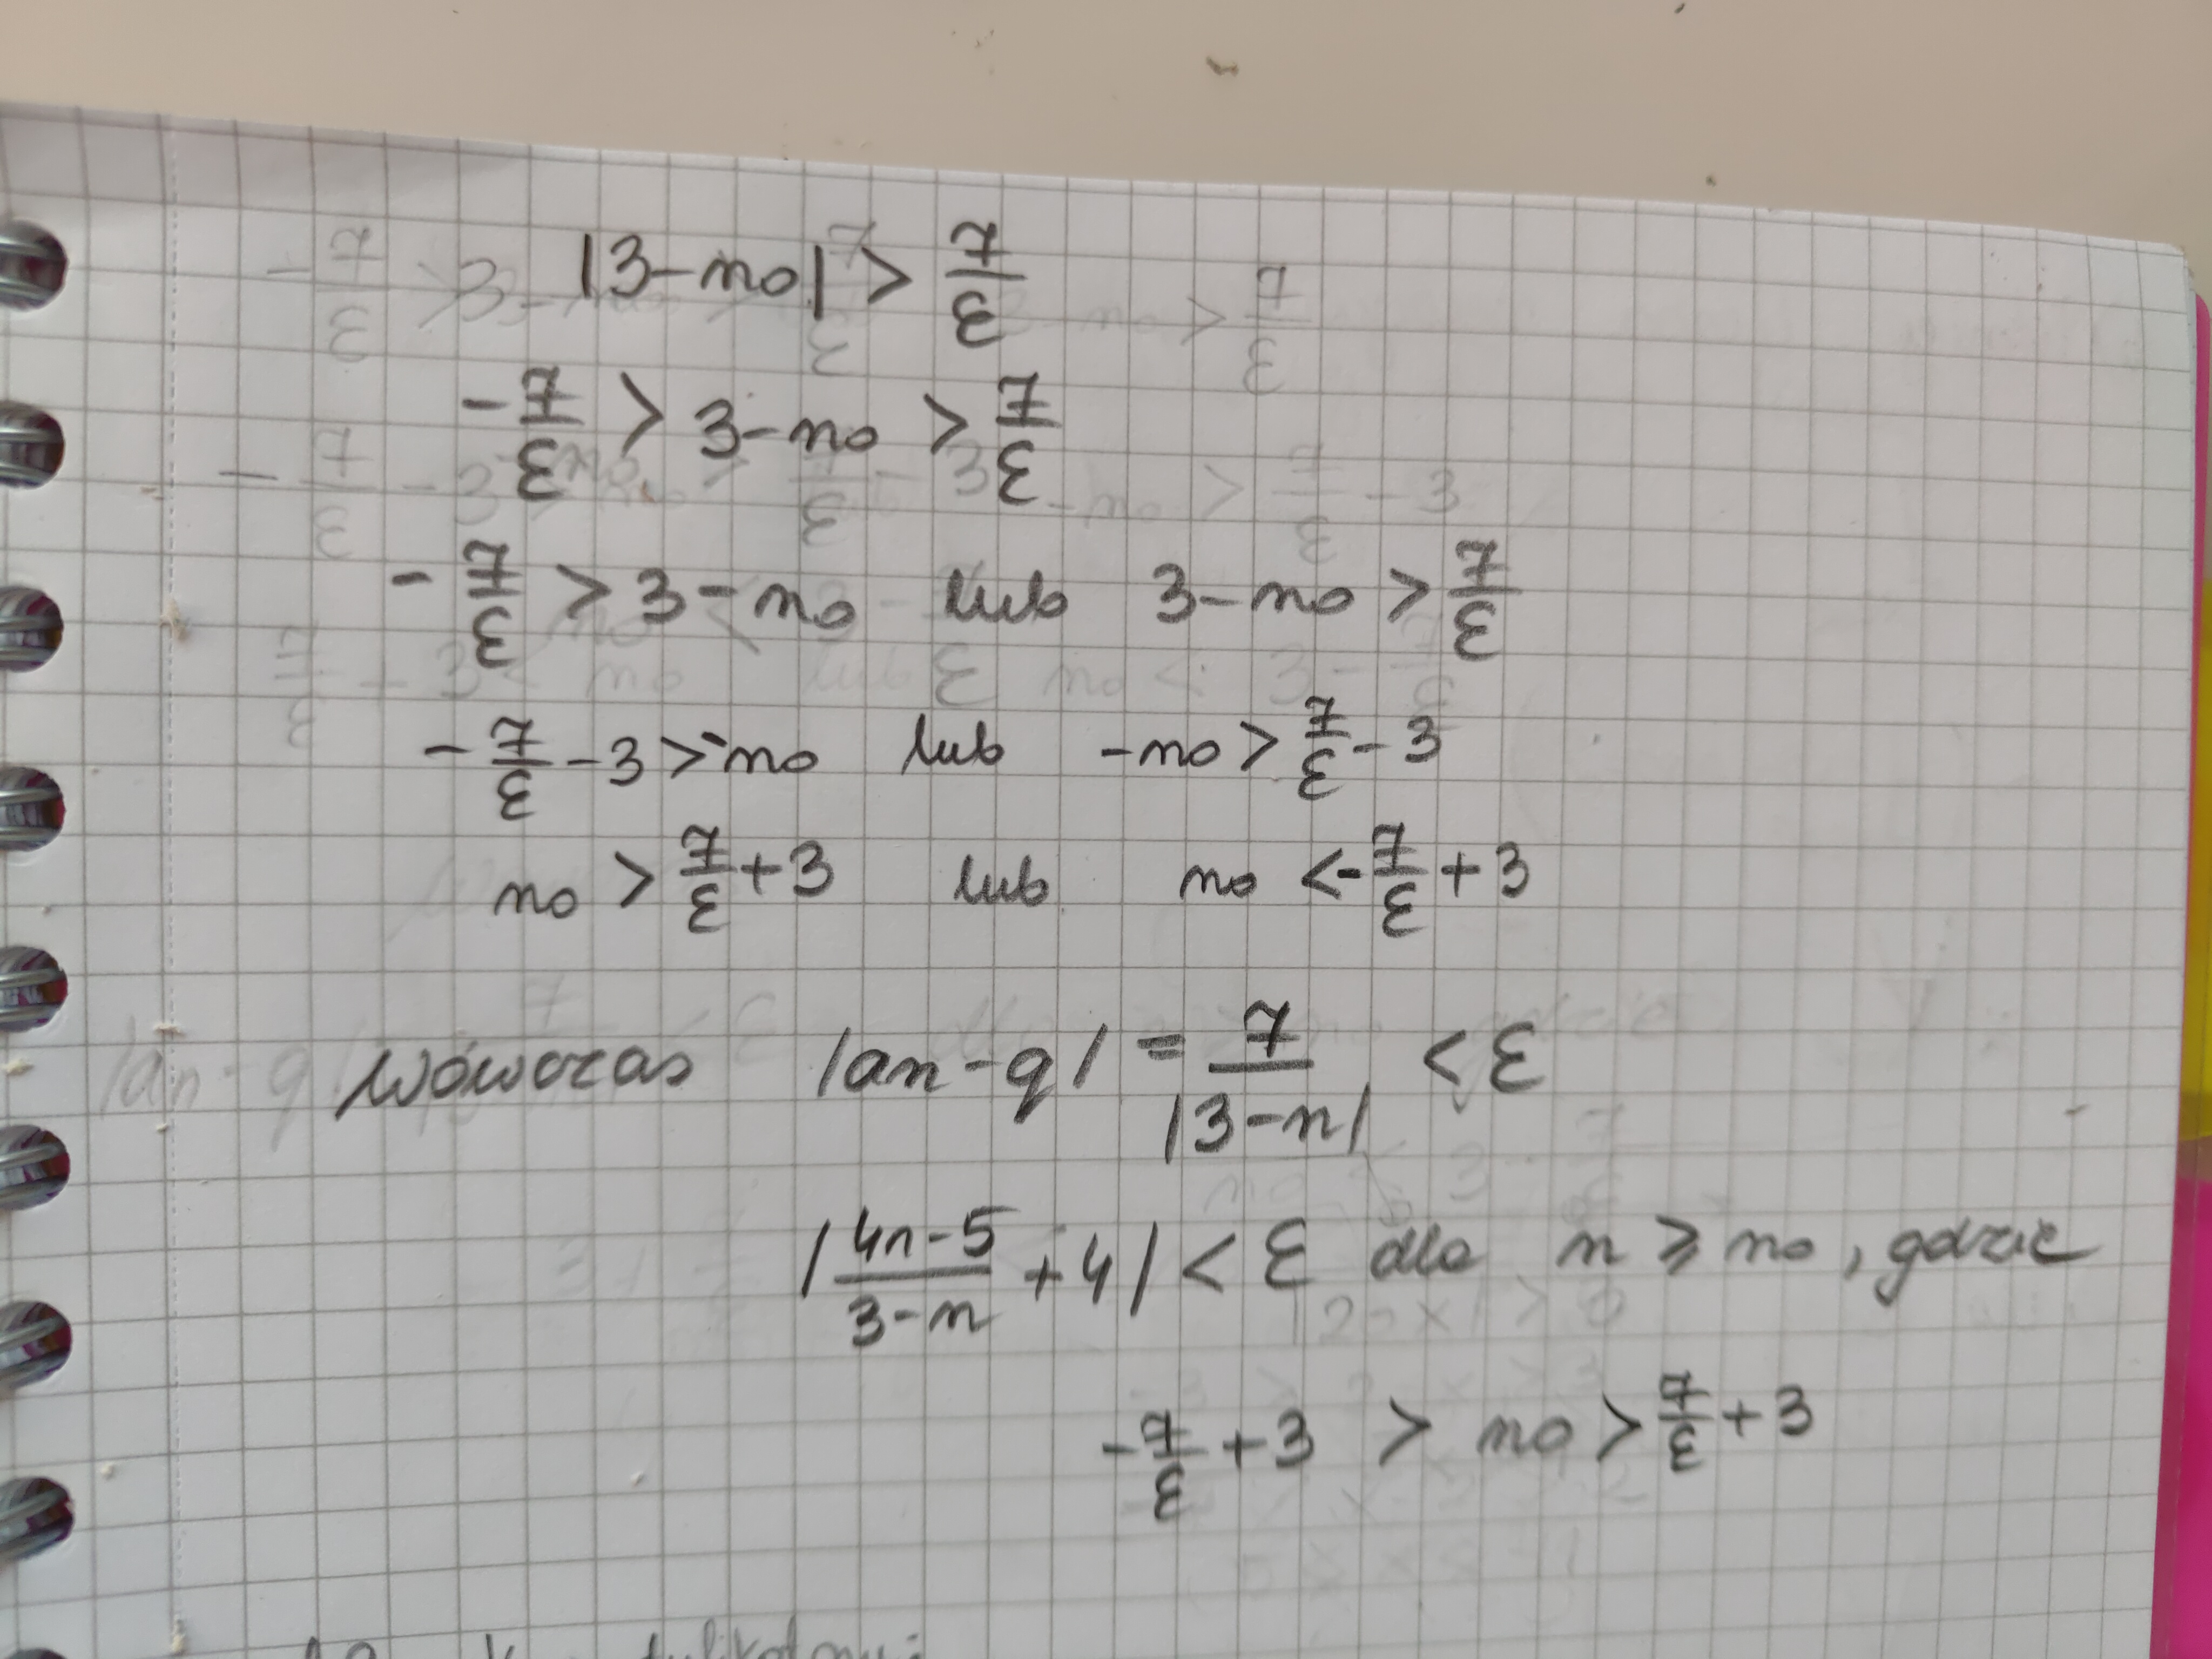 |3-no| > 7/ε
-7/ε > 3-no > 7/ε
-7/ε > 3-no lub 3-no > 7/ε
-7/ε -3 > -no lub -no > 7/ε -3
no > 7/ε +3 lub no < -7/ε +3
wówczas |an-g| = 7/|3-n| < ε
|4n-5/3-n +4| < ε dla n ≥ no, gdzie
-7/ε +3 > no > 7/ε +3